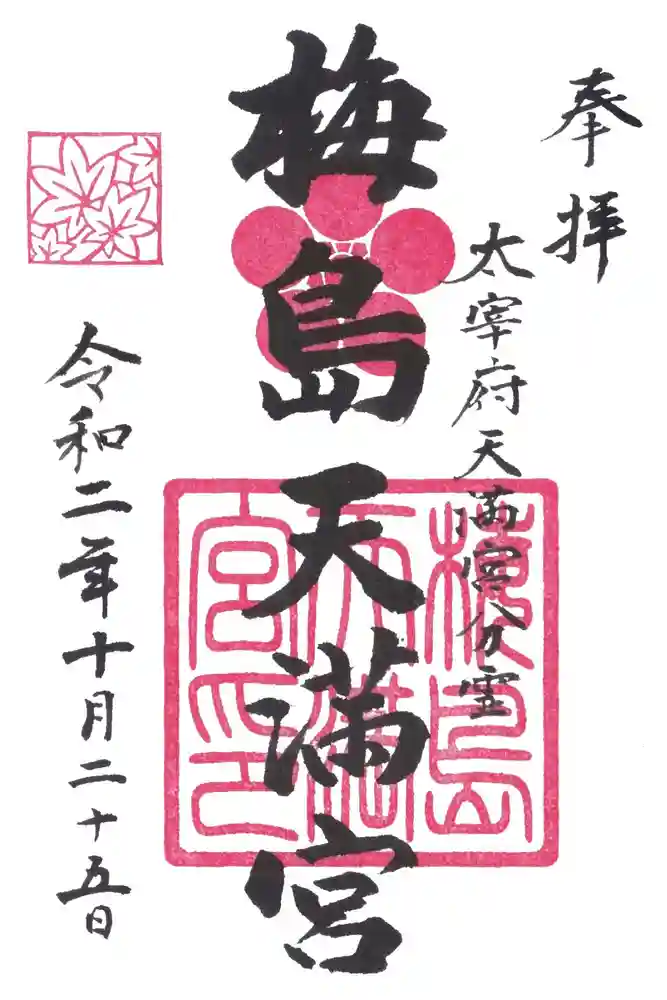 奉拝
太宰府天満宮分霊
梅島天満宮
梅島
天満
宮印
令和二年十月二十五日